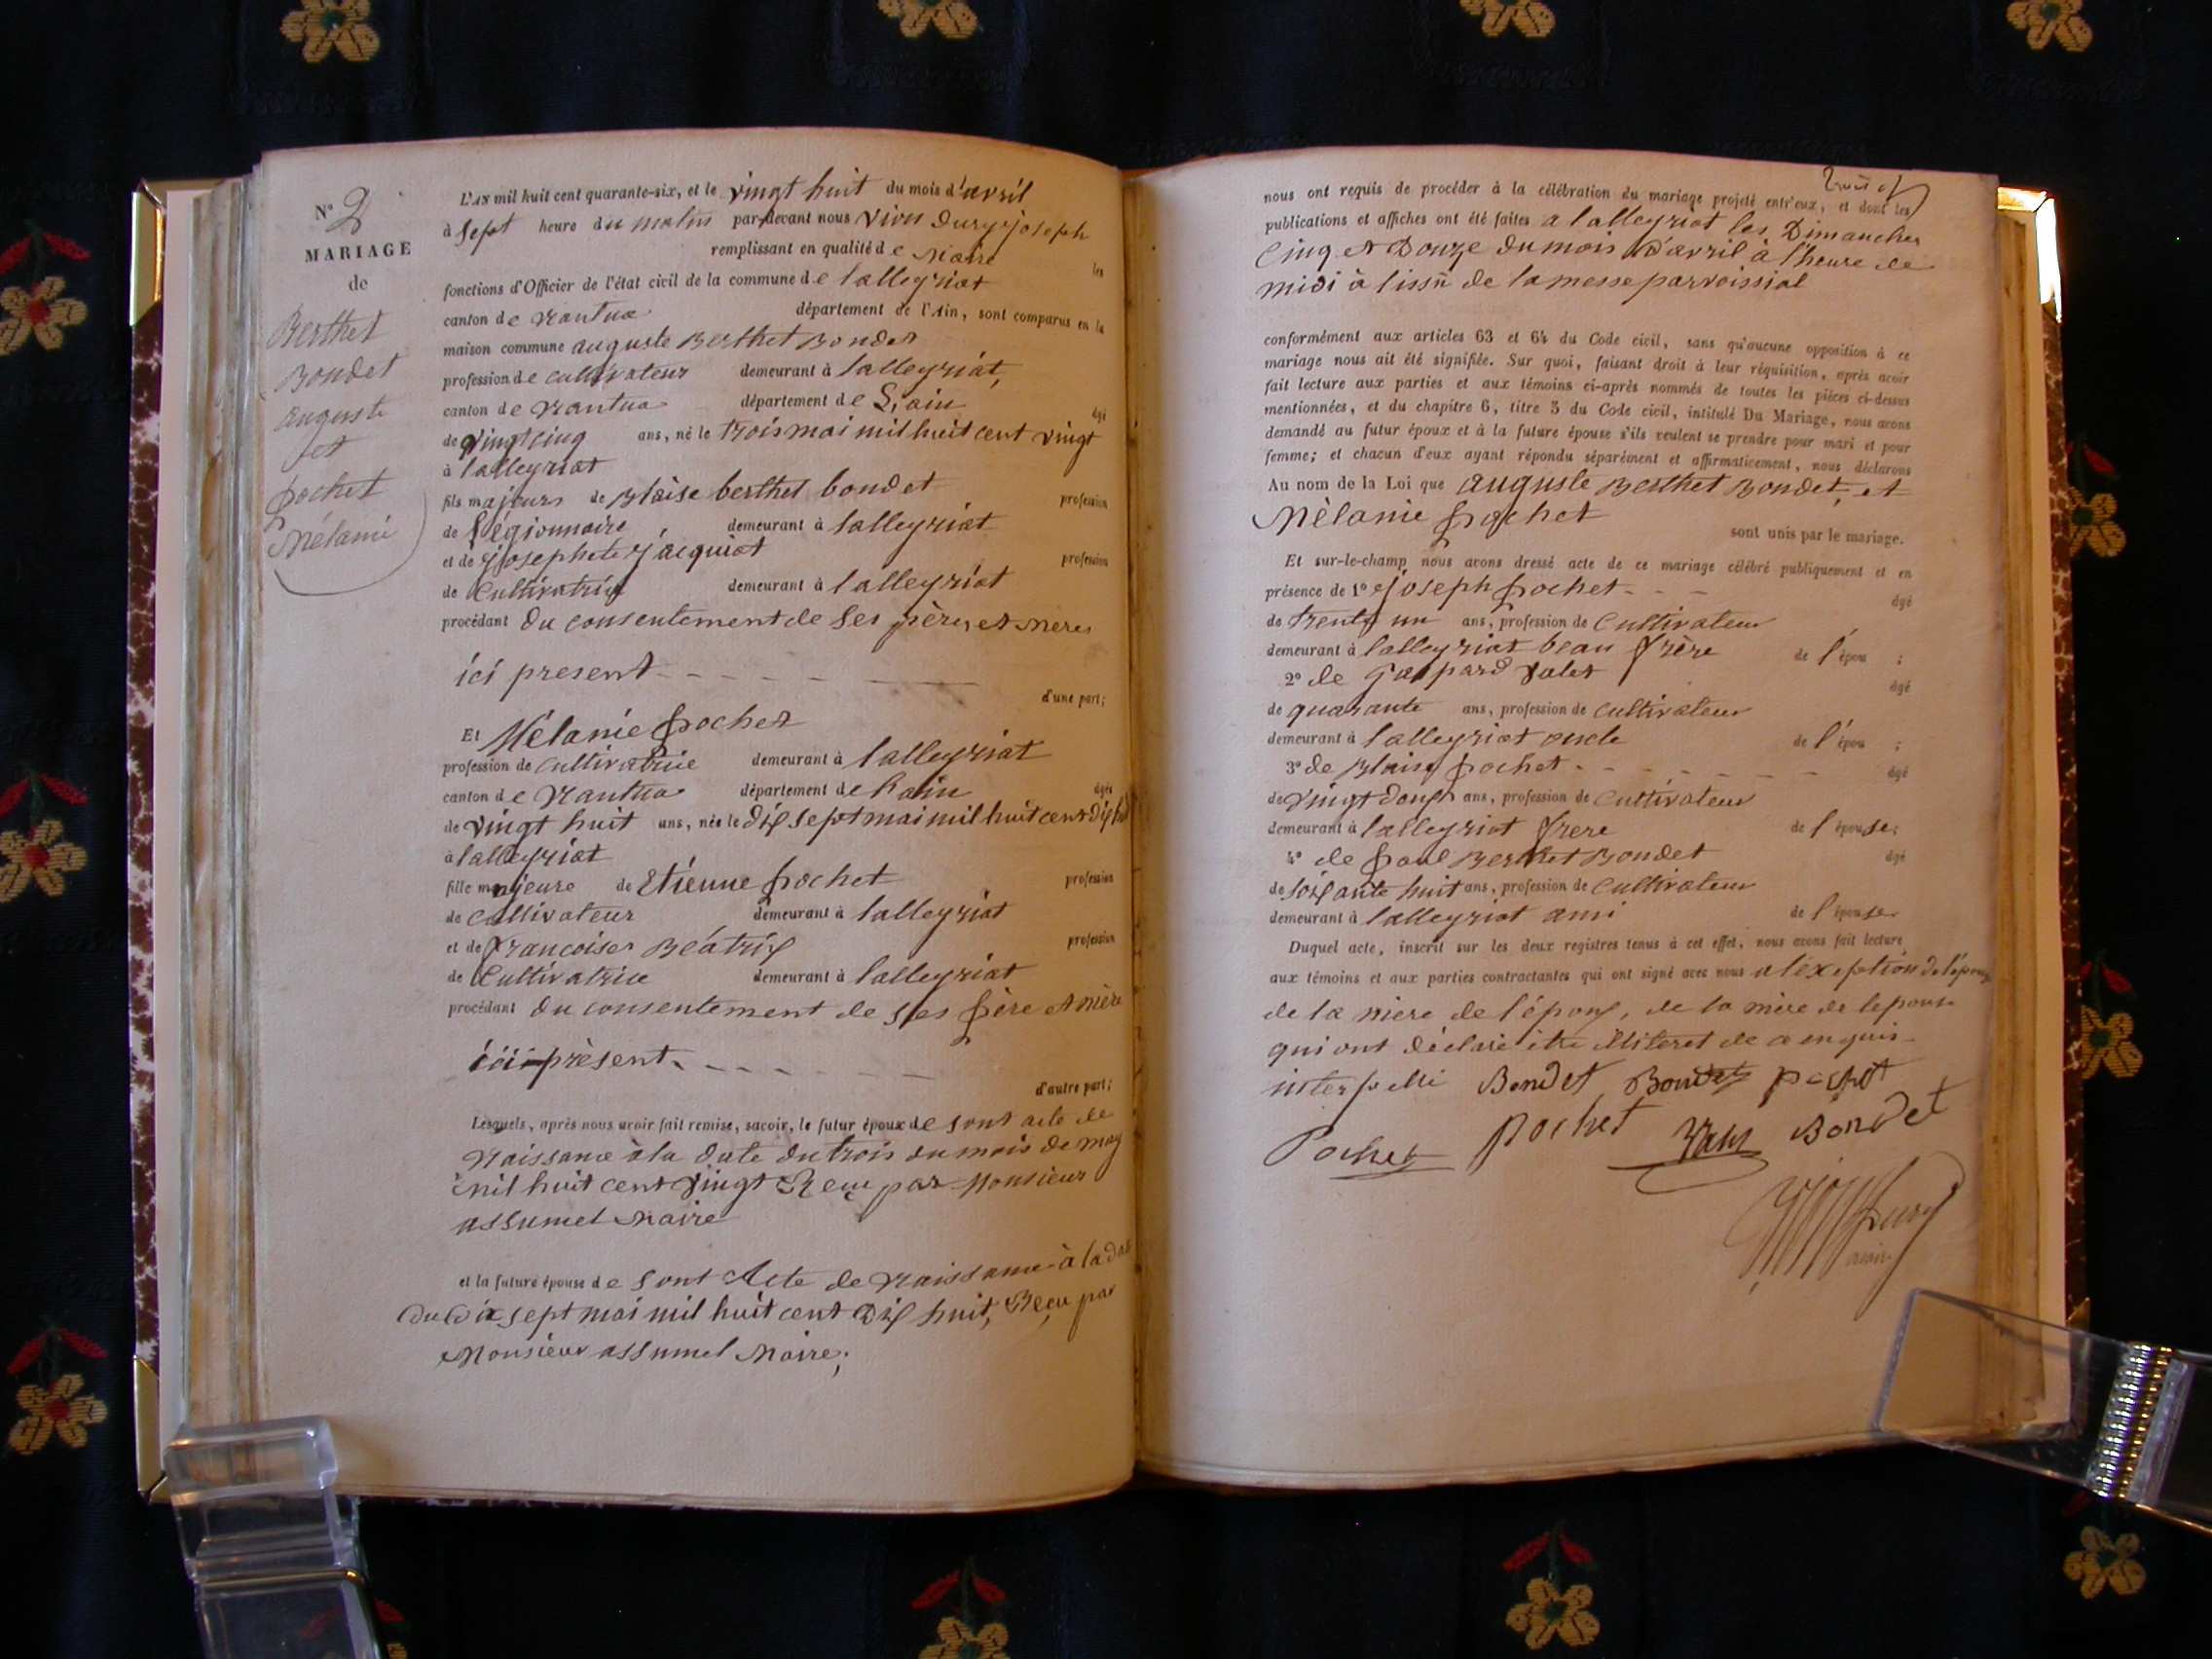 N° 2
MARIAGE
de
Berthet
Bondet
auguste
et
pochet
Mélanie
L'AN mil huit cent quarante-six, et le vingt huit du mois d'avril
à sept heure du matin par-devant nous joseph
remplissant en qualité de Maire les
fonctions d'Officier de l'état civil de la commune de lalleyriat
canton de Nantua département de l'Ain, sont comparus en la
maison commune auguste Berthet Bondet
profession de cultivateur demeurant à lalleyriat,
canton de Nantua département de L'ain âgé
de vingt cinq ans, né le trois mai mil huit cent vingt
à lalleyriat
fils majeurs de Blaise berthet bondet profession
de Légionnaire demeurant à lalleyriat
et de josephete jacquiot profession
de Cultivatrice demeurant à lalleyriat
procédant du consentement de ses pères et mères
ici present
d'une part;
Et Mélanie pochet
profession de cultivatrice demeurant à lalleyriat
canton de Nantua département de lain âgée
de vingt huit ans, née le dix sept mai mil huit cent dix huit
à lalleyriat
fille majeure de Etienne pochet profession
de cultivateur demeurant à lalleyriat
et de francoises Béatrix profession
de Cultivatrice demeurant à lalleyriat
procédant du consentement de ses père et mère
ici présent
d'autre part;
Lesquels, après nous avoir fait remise, savoir, le futur époux de sont acte de
Naissance à la date du trois du mois de may
mil huit cent vingt Reçu par Monsieur
assumel Maire
et la future épouse de sont Acte de Naissance à la date
du dix sept mai mil huit cent dix huit, Reçu par
Monsieur assumel Maire;
nous ont requis de procéder à la célébration du mariage projeté entr'eux, et dont les
publications et affiches ont été faites a lalleyriat les Dimanches
Cinq et Douze du mois d'avril à l'heure de
midi à lissü de la messe parroissial
conformément aux articles 63 et 64 du Code civil, sans qu'aucune opposition à ce
mariage nous ait été signifiée. Sur quoi, faisant droit à leur réquisition, après avoir
fait lecture aux parties et aux témoins ci-après nommés de toutes les pièces ci-dessus
mentionnées, et du chapitre 6, titre 5 du Code civil, intitulé Du Mariage, nous avons
demandé au futur époux et à la future épouse s'ils veulent se prendre pour mari et pour
femme; et chacun d'eux ayant répondu séparément et affirmativement, nous déclarons
Au nom de la Loi que auguste Berthet Bondet, et
Mèlanie pochet
sont unis par le mariage.
Et sur-le-champ nous avons dressé acte de ce mariage célébré publiquement et en
présence de 1° joseph pochet âgé
de trente un ans, profession de Cultivateur
demeurant à lalleyriat beau frère de l'épou ;
2° de Gaspard Valet âgé
de quarante ans, profession de cultivateur
demeurant à lalleyriat oncle de l'épou ;
3° de Blaise pochet âgé
de vingt douse ans, profession de Cultivateur
demeurant à lalleyriat frere de l'épouse;
4° de paul Berthet Bondet âgé
de soixante huit ans, profession de Cultivateur
demeurant à lalleyriat ami de l'épouse
Duquel acte, inscrit sur les deux registres tenus à cet effet, nous avons fait lecture
aux témoins et aux parties contractantes qui ont signé avec nous a l'exeption de l'épouse
de la mere de l'époux, de la mère de lepouse
qui ont déclaré être illiteret de ce enquis
interpellé Bondet Bondet pochet
Pochet pochet Valet Bondet
maire